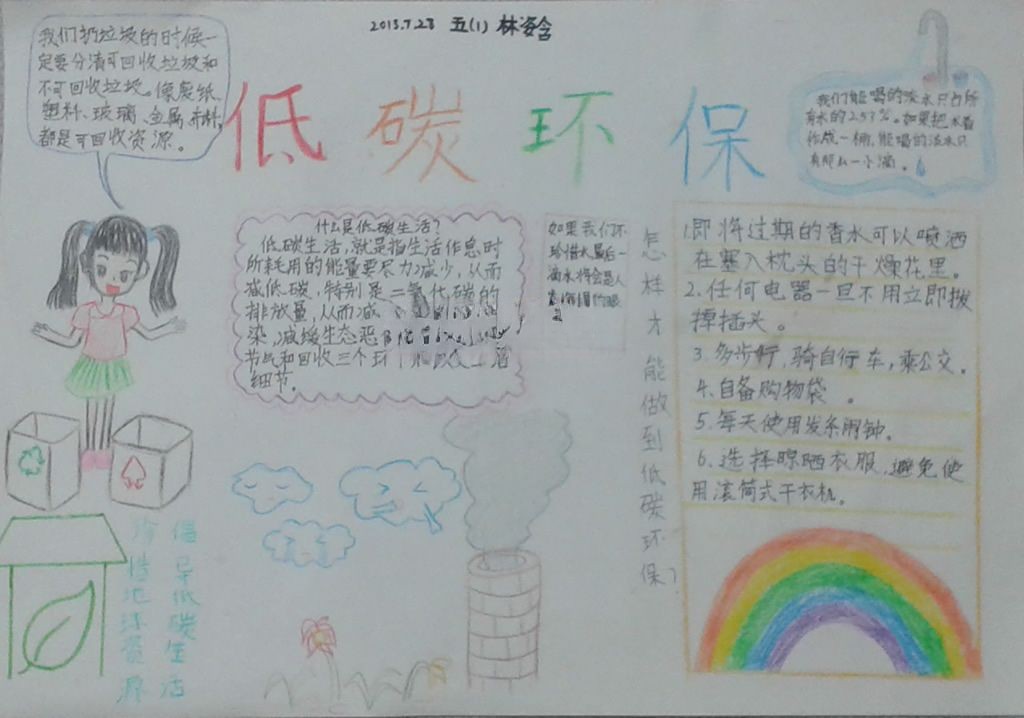 2015.7.28 五(1) 林姿含
我们扔垃圾的时候一
定要分清可回收垃圾和
不可回收垃圾。像废纸、
塑料、玻璃、金属、布料,
都是可回收资源。
低碳环保
我们能喝的淡水只占所
有水的2.53%。如果把水看
作成一桶,能喝的淡水只
有那么一小滴。
什么是低碳生活?
低碳生活,就是指生活作息时
所耗用的能量要尽力减少,从而
减低碳,特别是二氧化碳的
排放量,从而减
染,减缓生态恶
节气和回收三个环
细节。
如果我们不
珍惜水最后一
滴水将会是人
怎样才能做到低碳环保?
1.即将过期的香水可以喷洒
在塞入枕头的干燥花里。
2.任何电器一旦不用立即拨
掉插头。
3.多步行,骑自行车,乘公交。
4.自备购物袋。
5.每天使用发条闹钟。
6.选择晾晒衣服,避免使
用滚筒式干衣机。
倡导低碳生活
珍惜地球资源